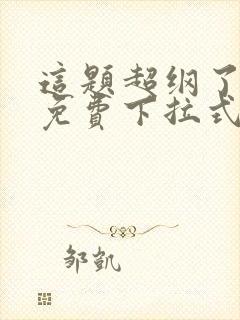 這題超纲了
免費下拉式
邹凱